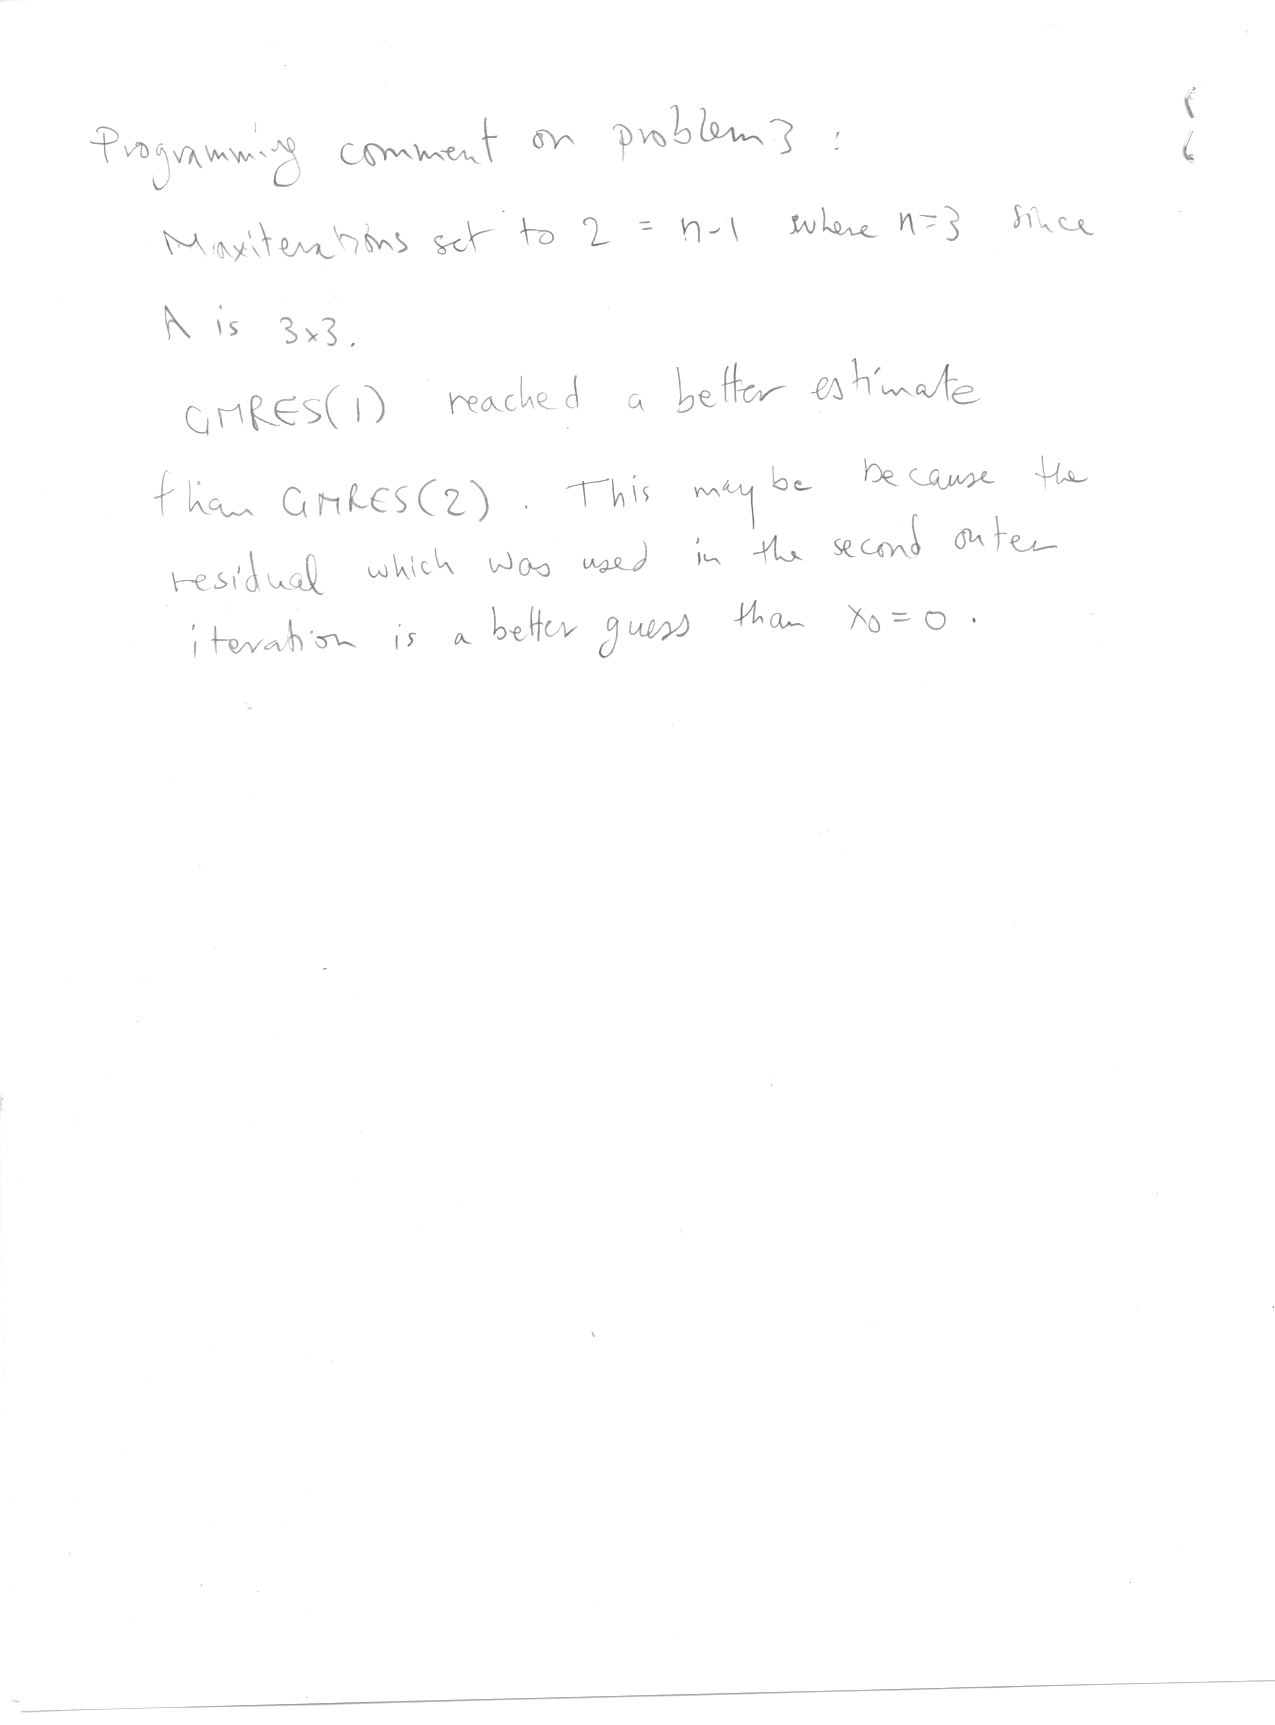 Programming comment on problem 3 :
Maxiterations set to 2 = n-1 where n=3 since
A is 3x3.
GMRES(1) reached a better estimate
than GMRES(2). This may be because the
residual which was used in the second outer
iteration is a better guess than x0 = 0.